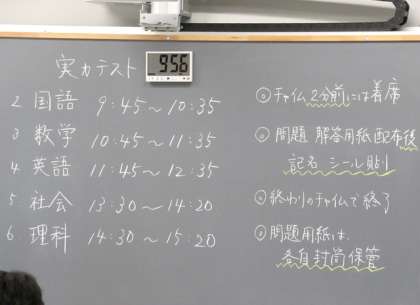 実力テスト
956
2 国語 9:45～10:35
3 数学 10:45～11:35
4 英語 11:45～12:35
5 社会 13:30～14:20
6 理科 14:30～15:20
◎チャイム2分前には着席
◎問題 解答用紙配布後
記名 シール貼り
◎終わりのチャイムで終了
◎問題用紙は、
各自封筒保管